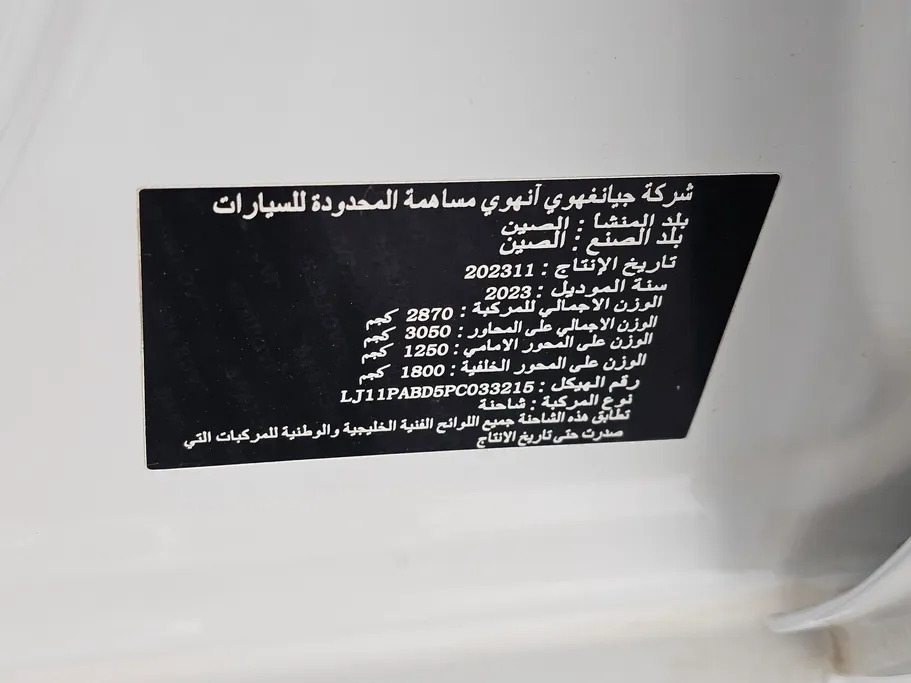 شركة جيانغهوي آنهوي مساهمة المحدودة للسيارات
بلد المنشا : الصين
بلد الصنع : الصين
تاريخ الإنتاج : 202311
سنة الموديل : 2023
الوزن الاجمالي للمركبة : 2870 كجم
الوزن الاجمالي على المحاور : 3050 كجم
الوزن على المحور الامامي : 1250 كجم
الوزن على المحور الخلفية : 1800 كجم
رقم الهيكل : LJ11PABD5PC033215
نوع المركبة : شاحنة
تطابق هذه الشاحنة جميع اللوائح الفنية الخليجية والوطنية للمركبات التي
صدرت حتى تاريخ الانتاج